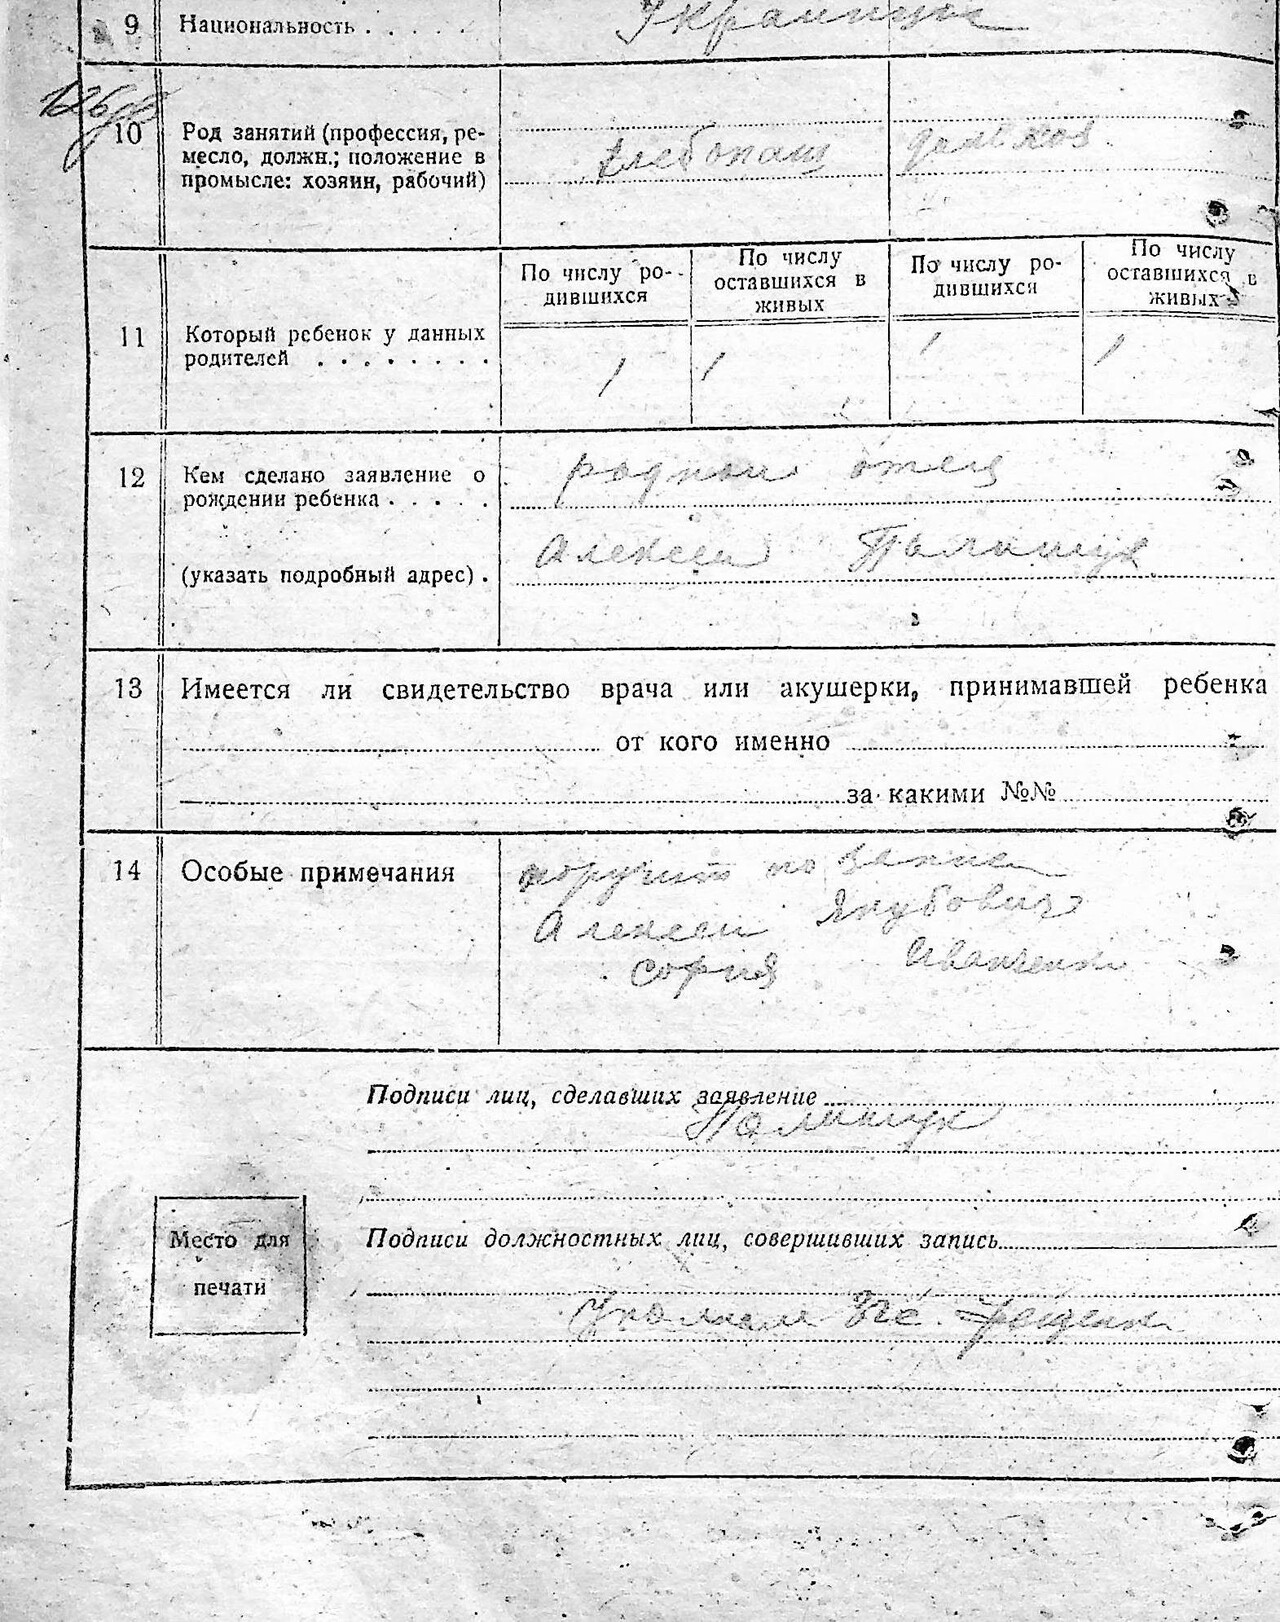 9 Национальность . . . . .
10 Род занятий (профессия, ре-
месло, должн.; положение в
промысле: хозяин, рабочий)
хлебопаш
11 Который ребенок у данных
родителей . . . . . . . .
По числу ро-
дившихся
По числу
оставшихся в
живых
По числу ро-
дившихся
По числу
оставшихся в
живых
1 1 1 1
12 Кем сделано заявление о
рождении ребенка . . . . .
(указать подробный адрес) .
родной отец
Алексей
13 Имеется ли свидетельство врача или акушерки, принимавшей ребенка
от кого именно
за какими №№
14 Особые примечания
Алексей Якубович
София Иванченко
Подписи лиц, сделавших заявление
Полищук
Место для
печати
Подписи должностных лиц, совершивших запись